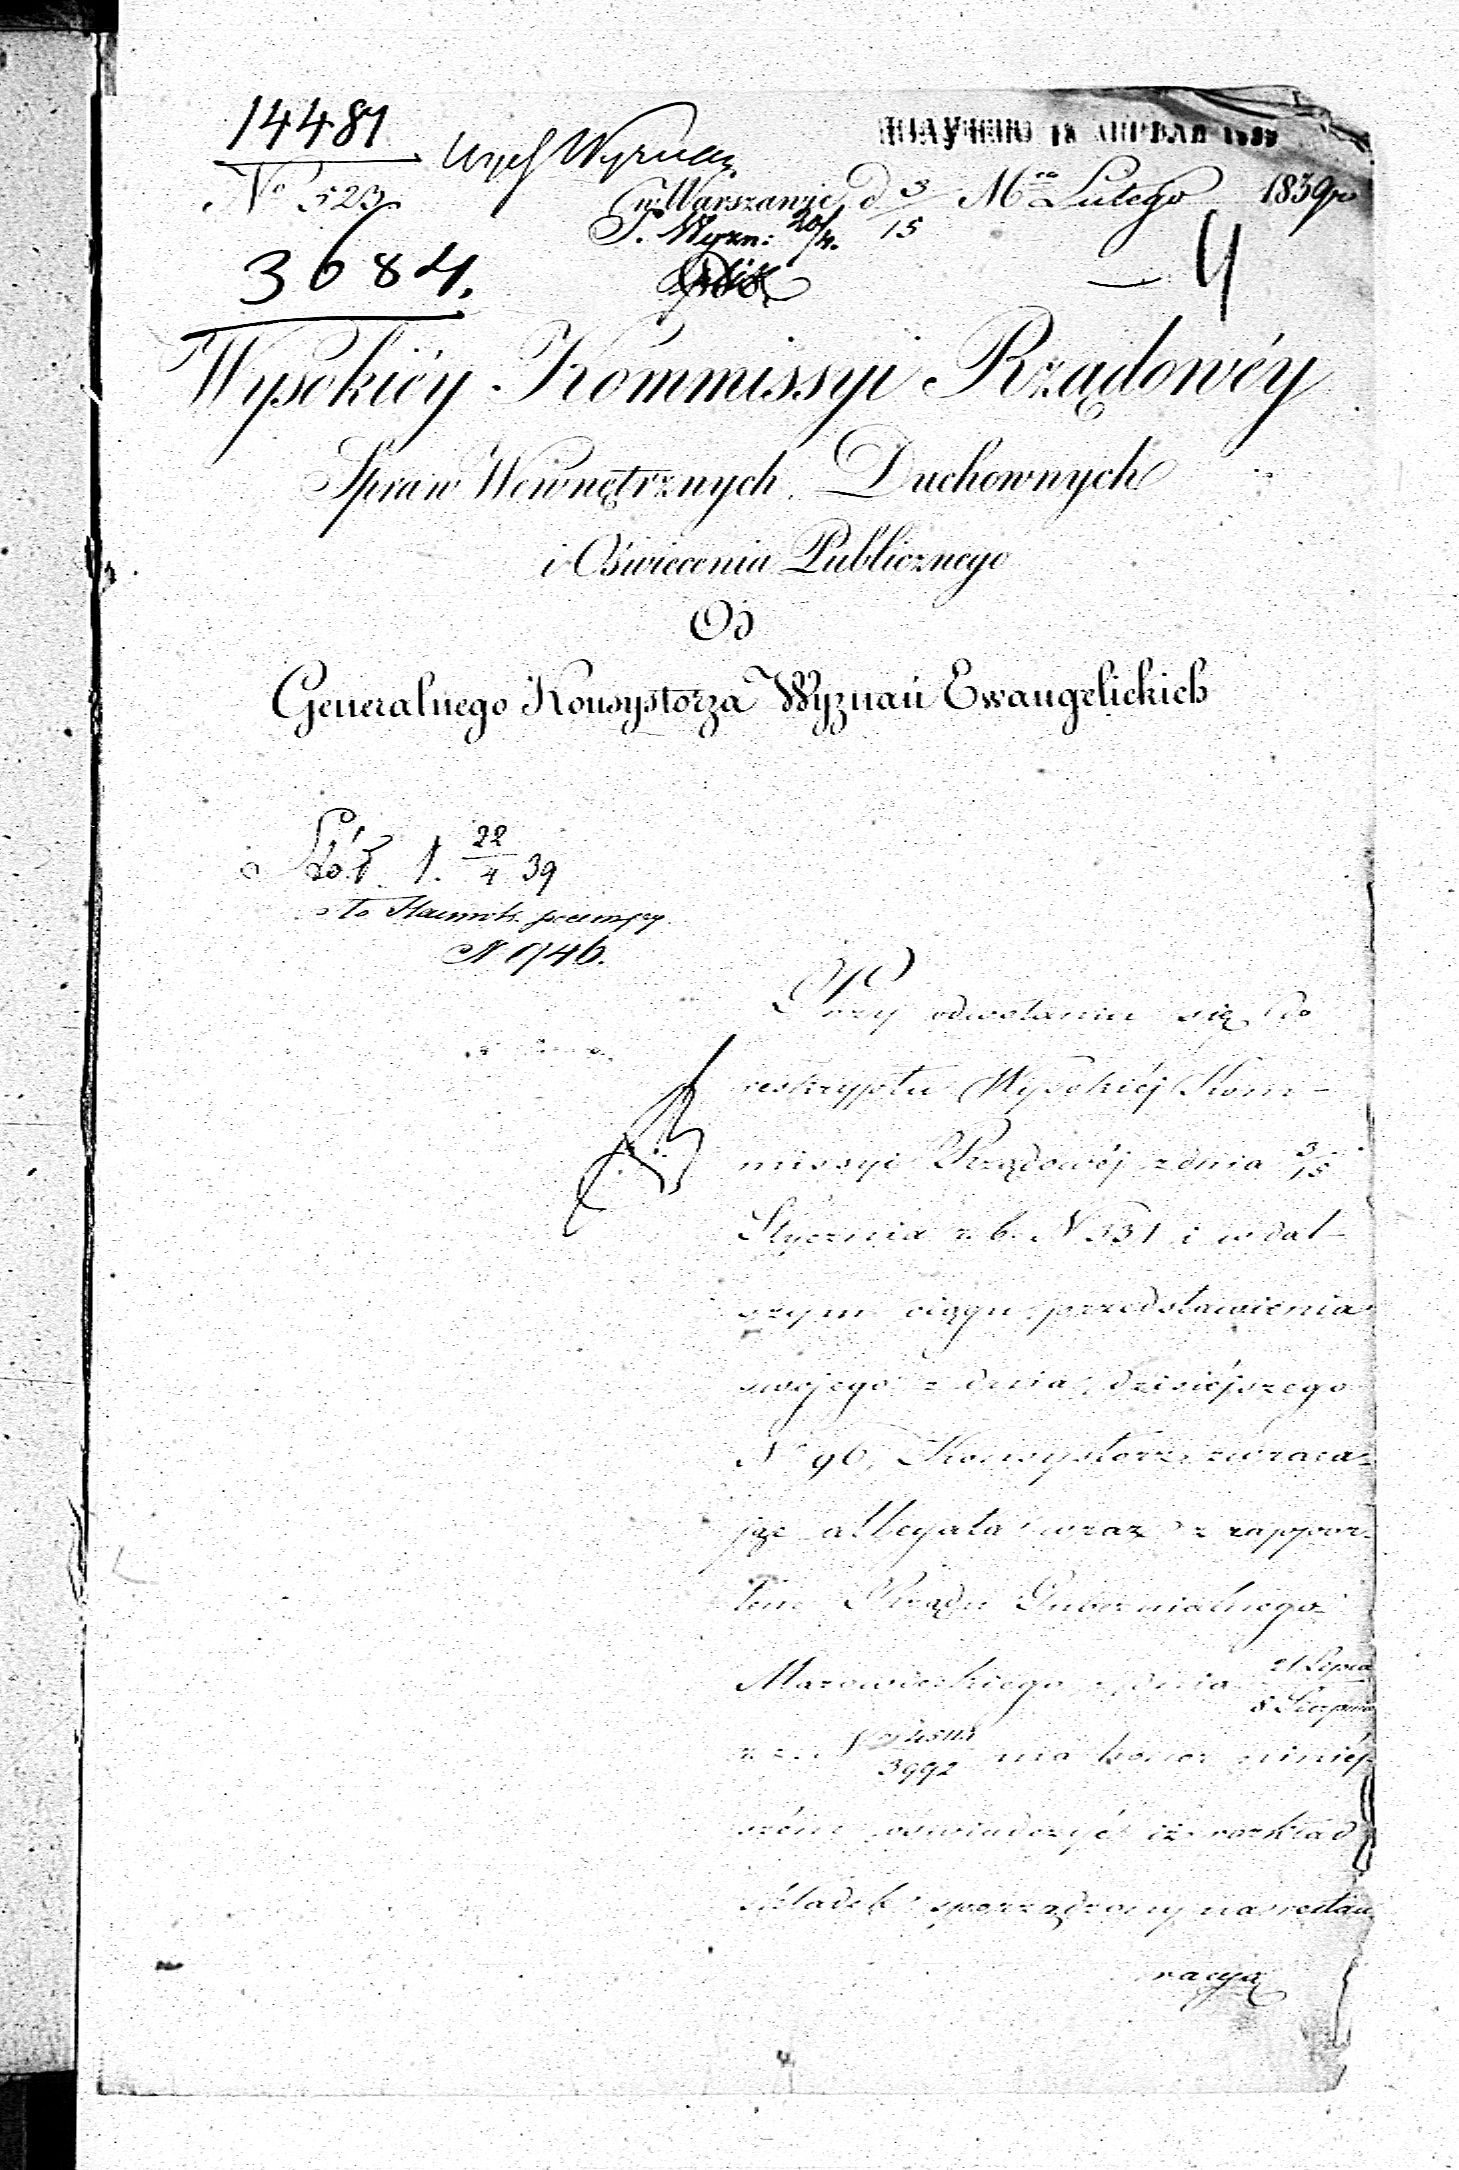 14481
Wyż Wyznań
ПОЛУЧЕНО 18 АПРѢЛЯ 1839
No 523
w Warszawie d 3/15 Mca Lutego 1839 ro
S. Wyzn: 20/4.
4
3684.
Wysokiéy Kommissyi Rządowéy
Spraw Wewnętrznych Duchownych
i Oświecenia Publicznego
Od
Generalnego Konsystorza Wyznań Ewangelickich
1. 22/4 39
N 1746.
Przy odwołaniu się do
reskryptu Wysokiéj Kom-
missyi Rządowéj z dnia 3/15
Stycznia r. b. N 331 i w dal-
szym ciągu przedstawienia
swojego z dnia dzisiéjszego
No 96, Konsystorz zwraca-
jąc allegata wraz z rappor-
tem Rządu Gubernialnego
Mazowieckiego z dnia 21 Lipca/8 Sierpnia
r. z. N 3992 ma honor niniéj-
szém oświadczyć iż rozkład
składek sporządzony na restau
racyą